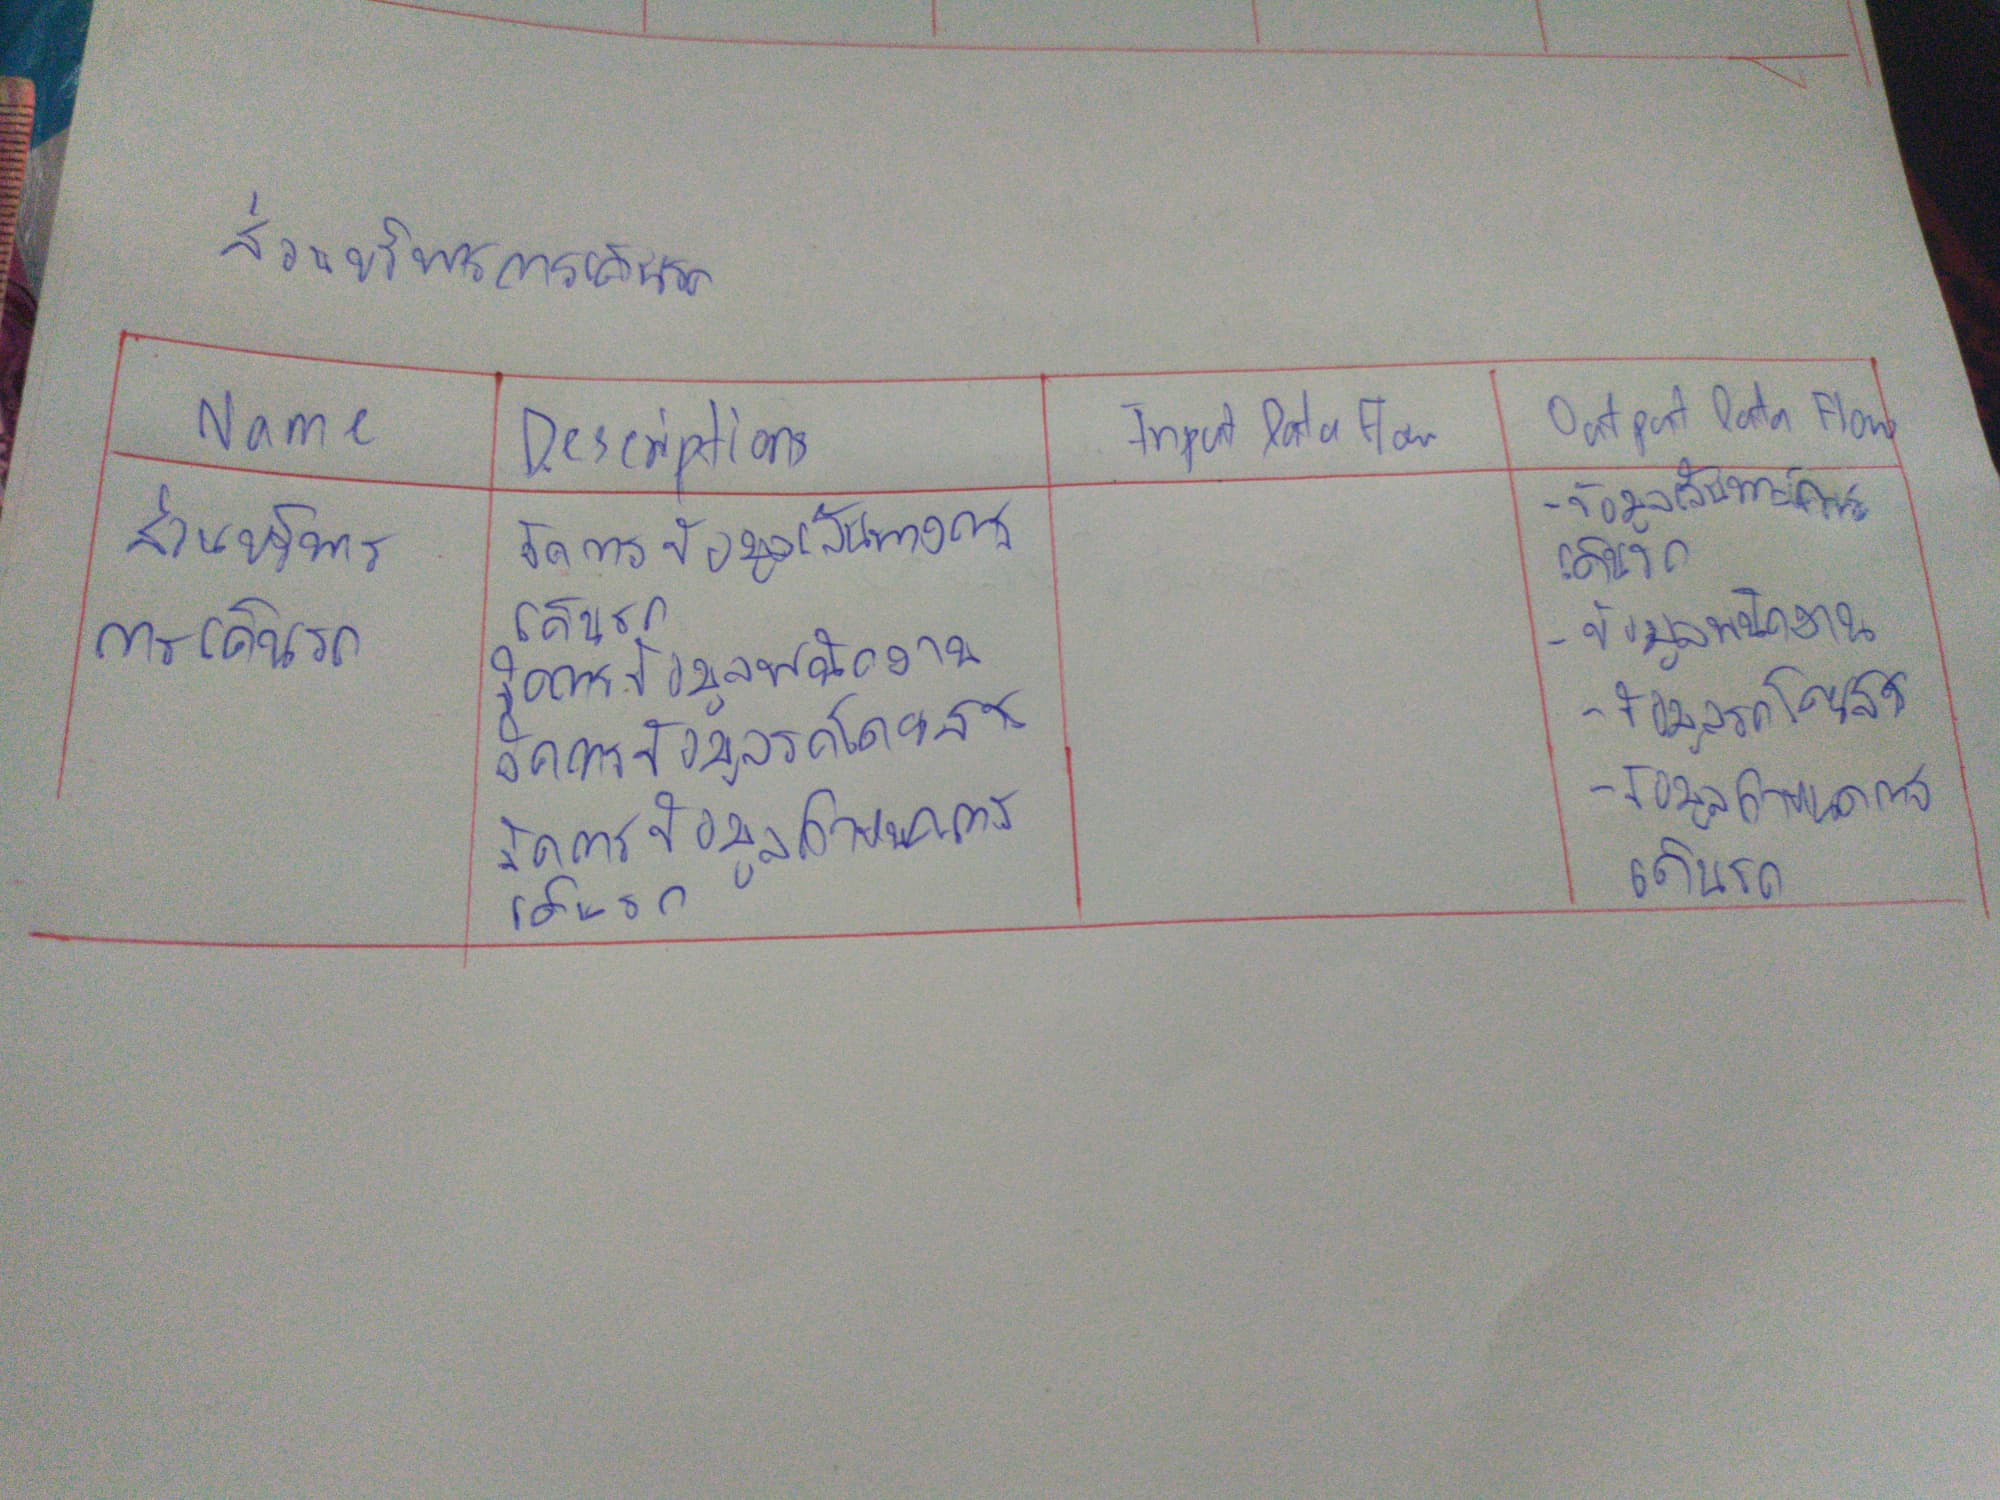 ส่วนบริหารการเดินรถ
Name
Descriptions
Input Data Flow
Output Data Flow
ส่วนบริหาร
การเดินรถ
จัดการข้อมูลเส้นทางการ
เดินรถ
จัดการข้อมูลพนักงาน
จัดการข้อมูลรถโดยสาร
จัดการข้อมูลกำหนดการ
เดินรถ
- ข้อมูลเส้นทางการ
เดินรถ
- ข้อมูลพนักงาน
- ข้อมูลรถโดยสาร
- ข้อมูลกำหนดการ
เดินรถ